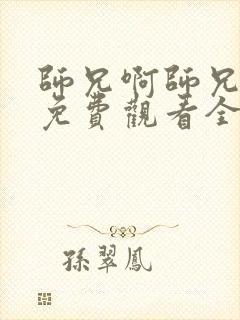 師兄啊師兄
免費觀看全
孫翠鳳